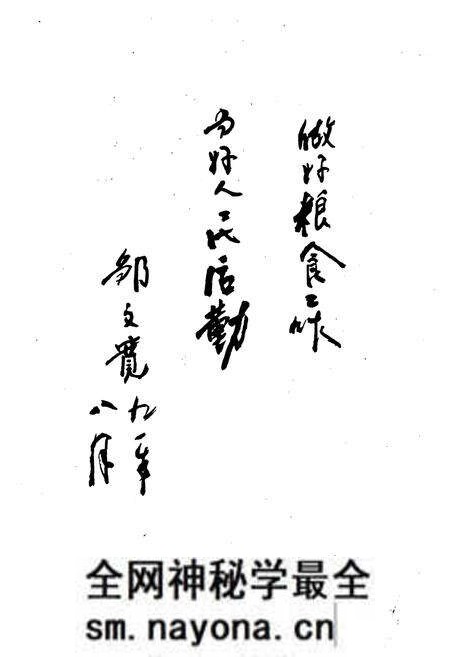 做好粮食工作
当好人民后勤
邹文宽
九一年
八月
全网神秘学最全
sm.nayona.cn